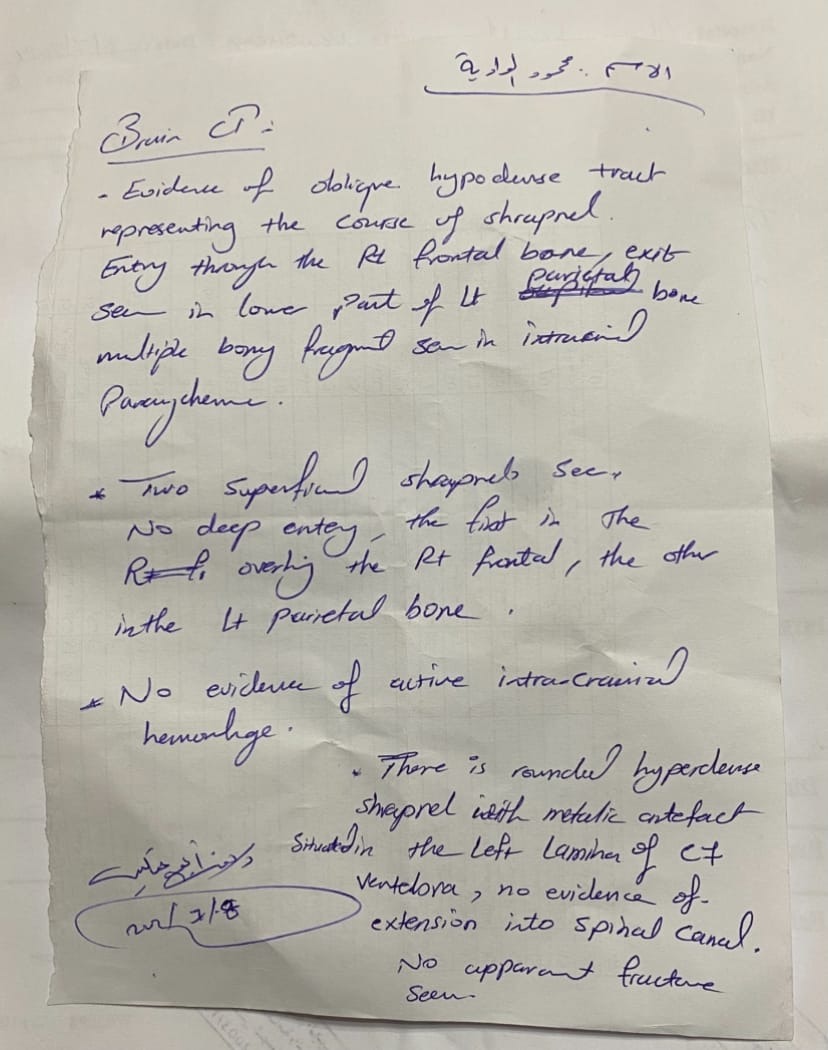 الاسم: محمود الوادية
Brain CT:
- Evidence of oblique hypodense tract
representing the course of shrapnel.
Entry through the Rt frontal bone, exit
seen in lower part of Lt parietal bone
multiple bony fragment seen in intracranial
Parenycheme.
* Two superficial shrapnels see,
No deep entey, the first in The
overling the Rt frontal, the other
in the Lt parietal bone.
* No evidence of active intra-cranial
hemorrhge.
• There is rounded hyperdense
shrapnel with metalic artefact
Situated in the Left Lamina of C7
ventelora, no evidence of
extension into spinal canal.
No apparant fracture
seen.